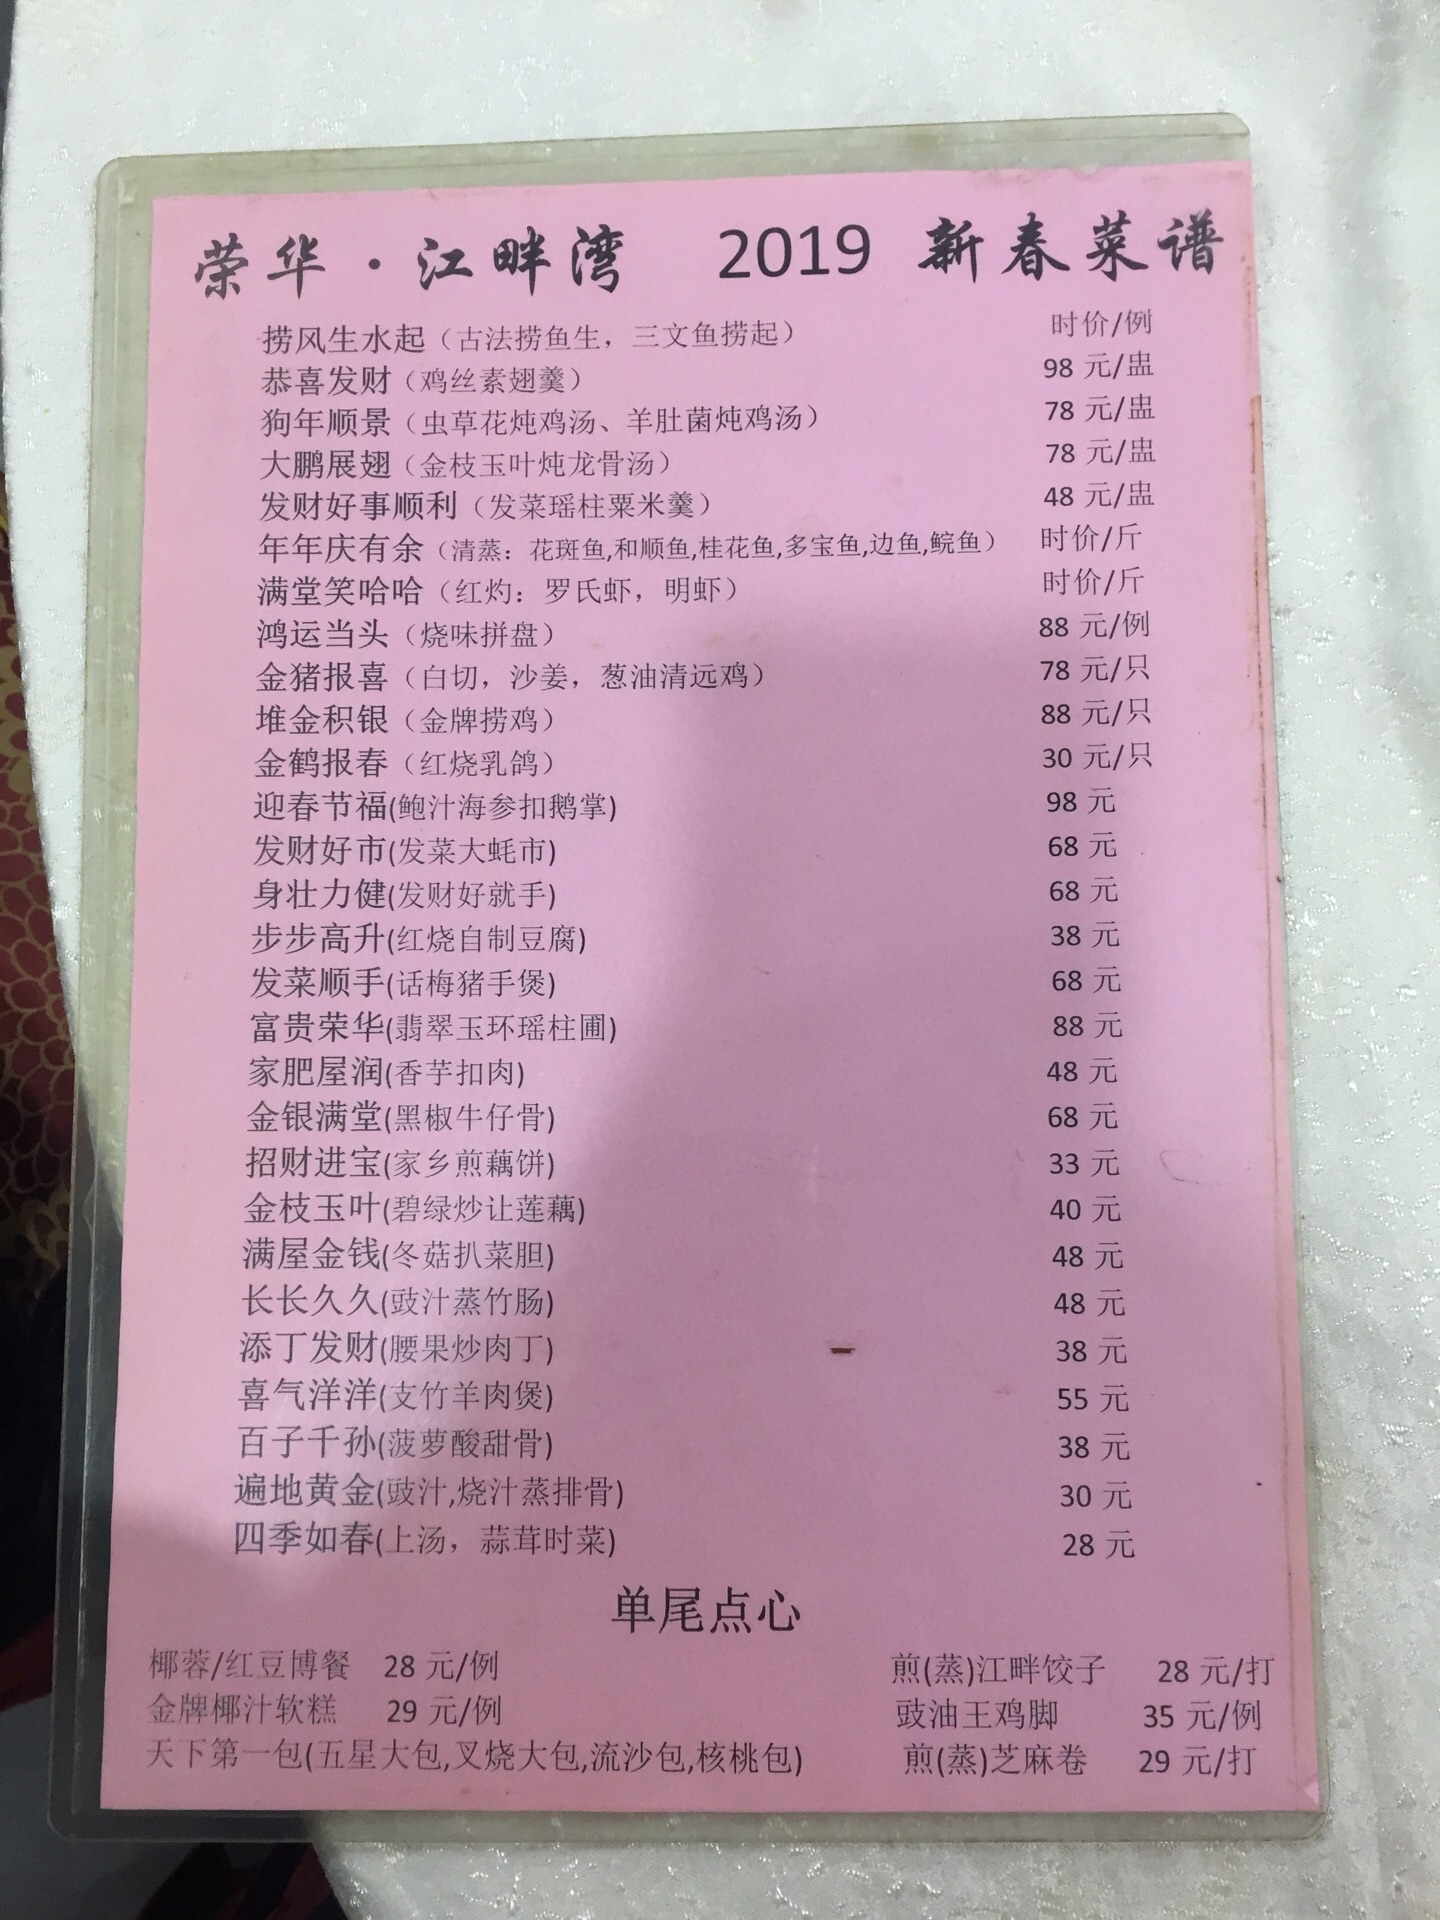 荣华·江畔湾 2019 新春菜谱
捞风生水起（古法捞鱼生，三文鱼捞起） 时价/例
恭喜发财（鸡丝素翅羹） 98 元/盅
狗年顺景（虫草花炖鸡汤、羊肚菌炖鸡汤） 78 元/盅
大鹏展翅（金枝玉叶炖龙骨汤） 78 元/盅
发财好事顺利（发菜瑶柱粟米羹） 48 元/盅
年年庆有余（清蒸：花斑鱼,和顺鱼,桂花鱼,多宝鱼,边鱼,鲩鱼） 时价/斤
满堂笑哈哈（红灼：罗氏虾，明虾） 时价/斤
鸿运当头（烧味拼盘） 88 元/例
金猪报喜（白切，沙姜，葱油清远鸡） 78 元/只
堆金积银（金牌捞鸡） 88 元/只
金鹤报春（红烧乳鸽） 30 元/只
迎春节福(鲍汁海参扣鹅掌) 98 元
发财好市(发菜大蚝市) 68 元
身壮力健(发财好就手) 68 元
步步高升(红烧自制豆腐) 38 元
发菜顺手(话梅猪手煲) 68 元
富贵荣华(翡翠玉环瑶柱圃) 88 元
家肥屋润(香芋扣肉) 48 元
金银满堂(黑椒牛仔骨) 68 元
招财进宝(家乡煎藕饼) 33 元
金枝玉叶(碧绿炒让莲藕) 40 元
满屋金钱(冬菇扒菜胆) 48 元
长长久久(豉汁蒸竹肠) 48 元
添丁发财(腰果炒肉丁) 38 元
喜气洋洋(支竹羊肉煲) 55 元
百子千孙(菠萝酸甜骨) 38 元
遍地黄金(豉汁,烧汁蒸排骨) 30 元
四季如春(上汤，蒜茸时菜) 28 元
单尾点心
椰蓉/红豆博餐 28 元/例 煎(蒸)江畔饺子 28 元/打
金牌椰汁软糕 29 元/例 豉油王鸡脚 35 元/例
天下第一包(五星大包,叉烧大包,流沙包,核桃包) 煎(蒸)芝麻卷 29 元/打